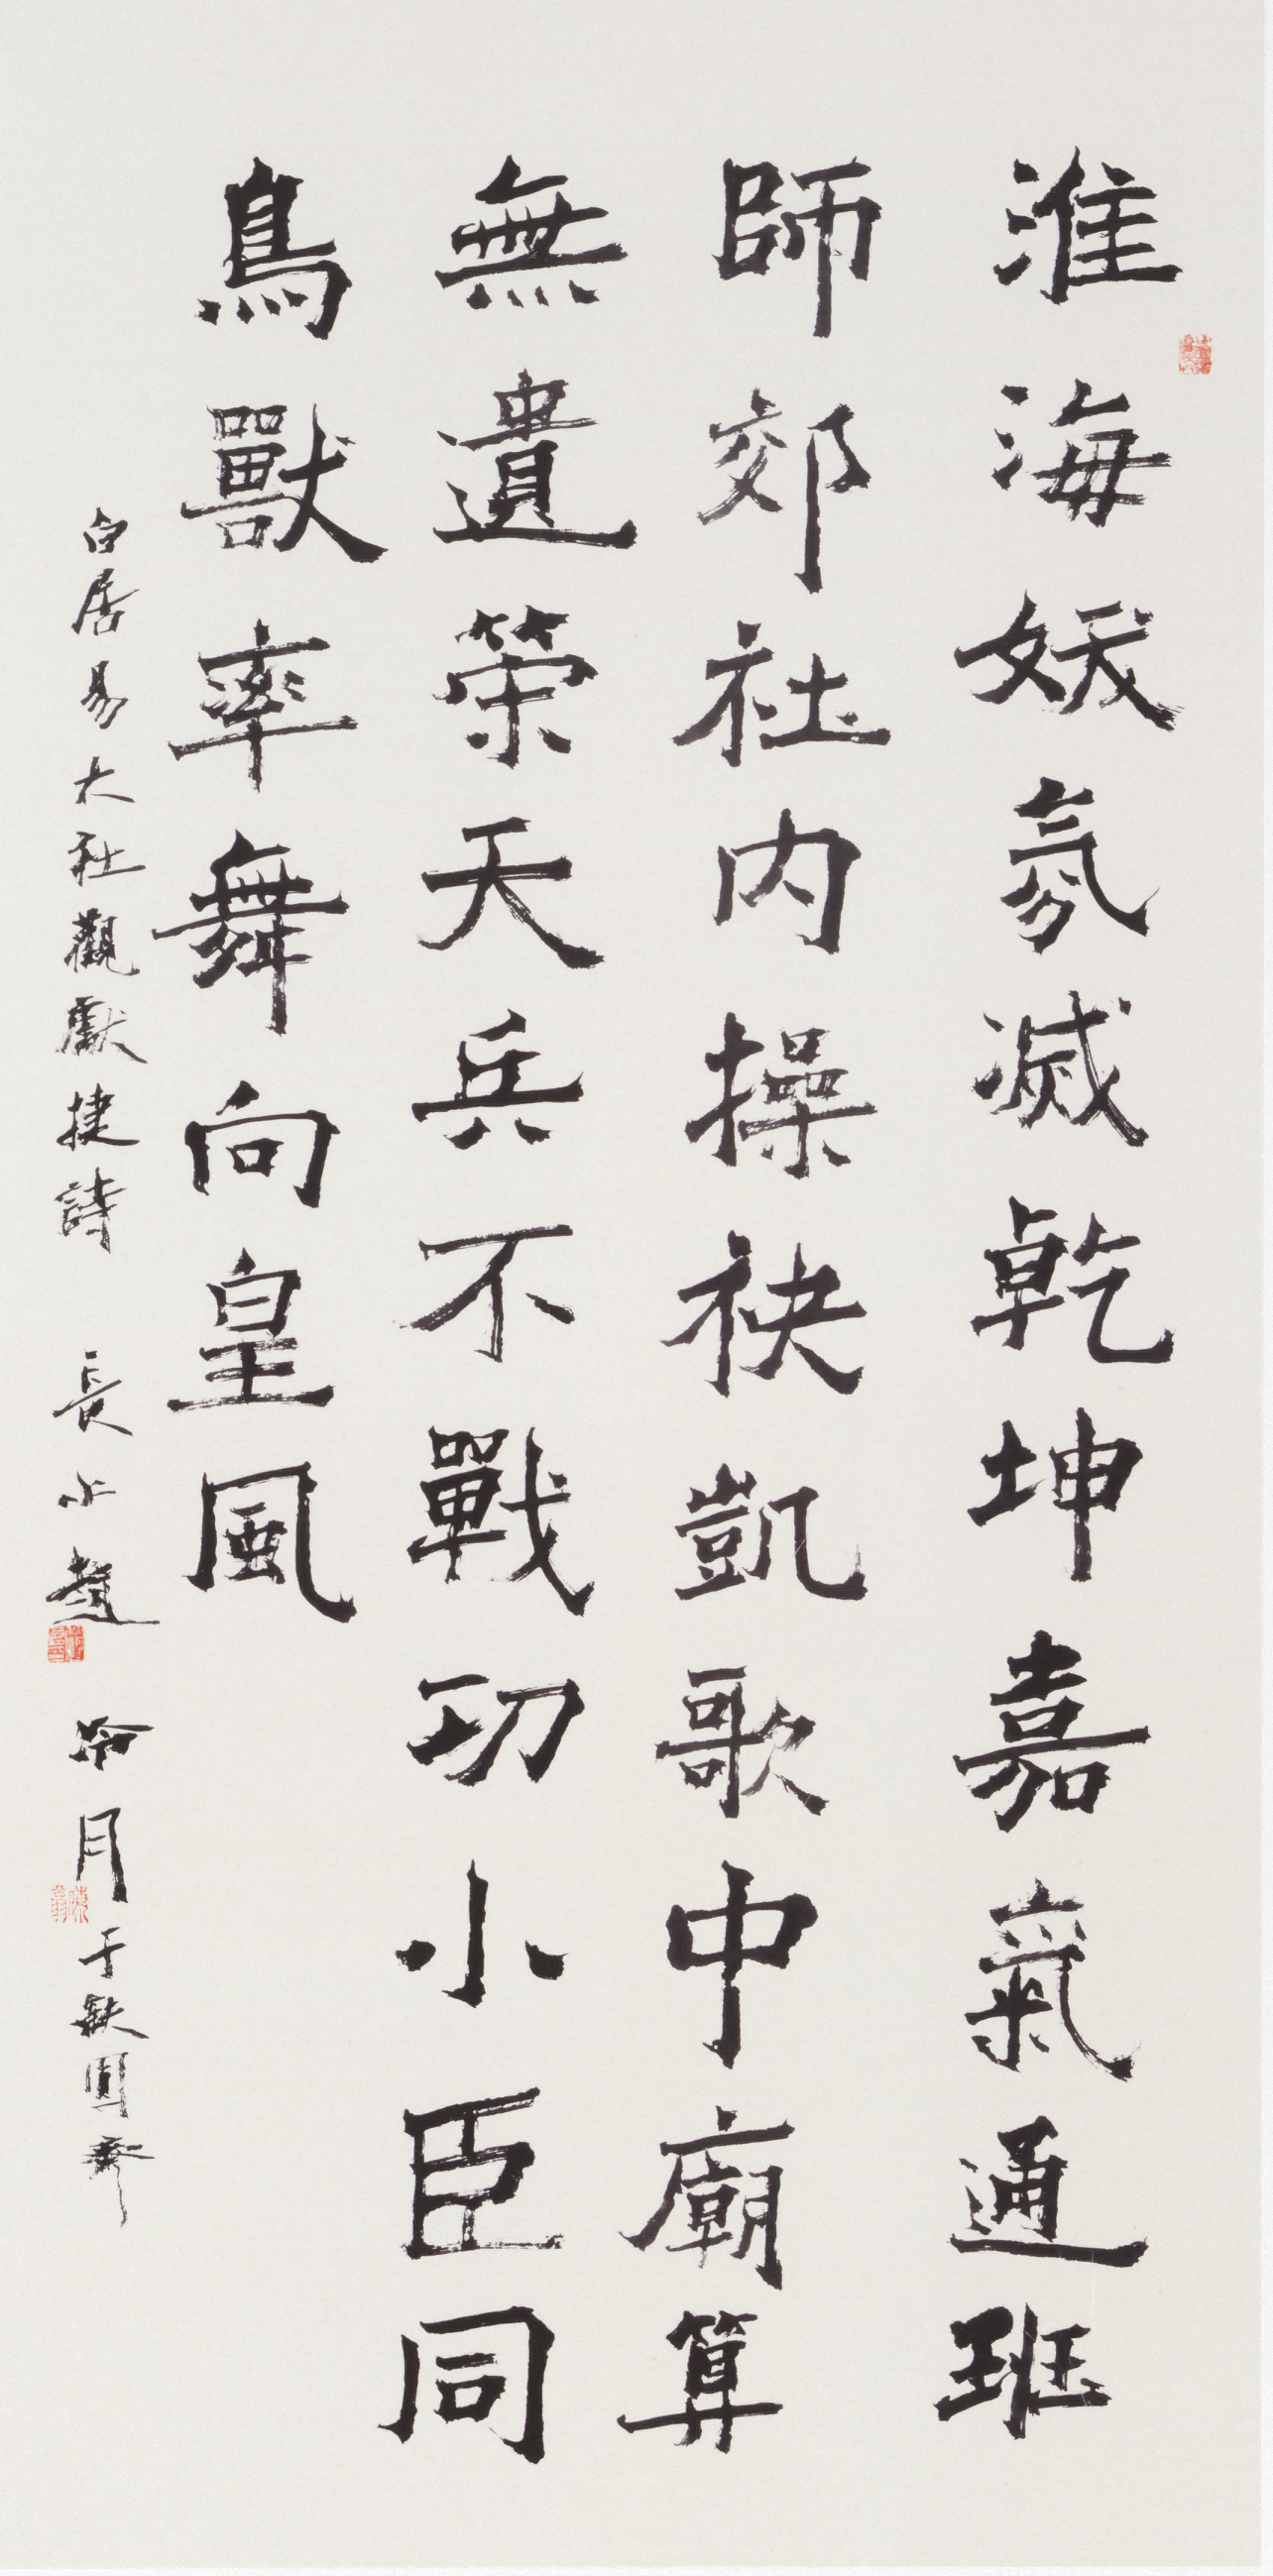 淮海妖氛滅乾坤嘉氣通班
師郊社内操袂凱歌中廟算
無遺策天兵不戰功小臣同
鳥獸率舞向皇風
白居易大社觀獻捷詩 長水 冷月于缺圓齋